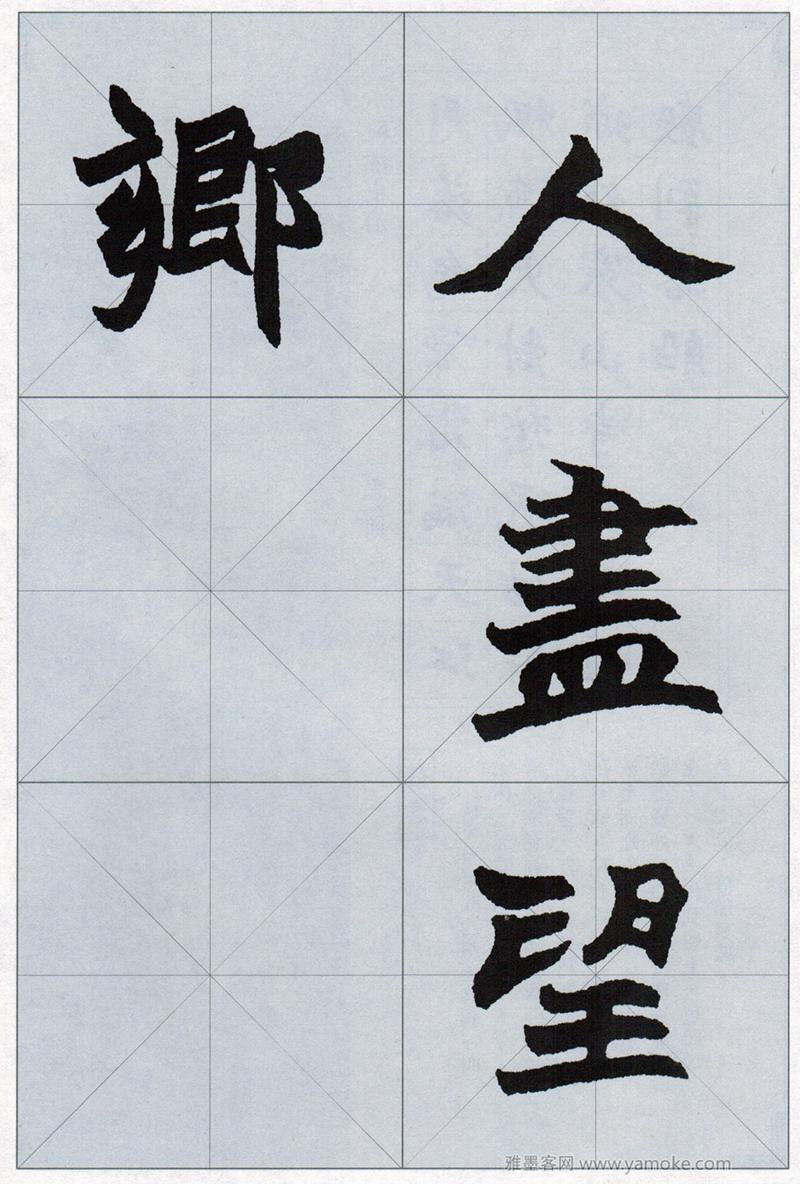 人盡望
鄉
雅墨客网 www.yamoke.com